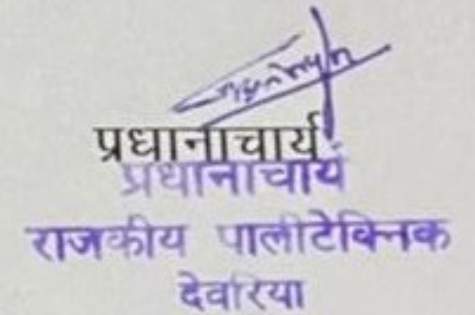 प्रधानाचार्य
प्रधानाचार्य
राजकीय पालीटेक्निक
देवरिया